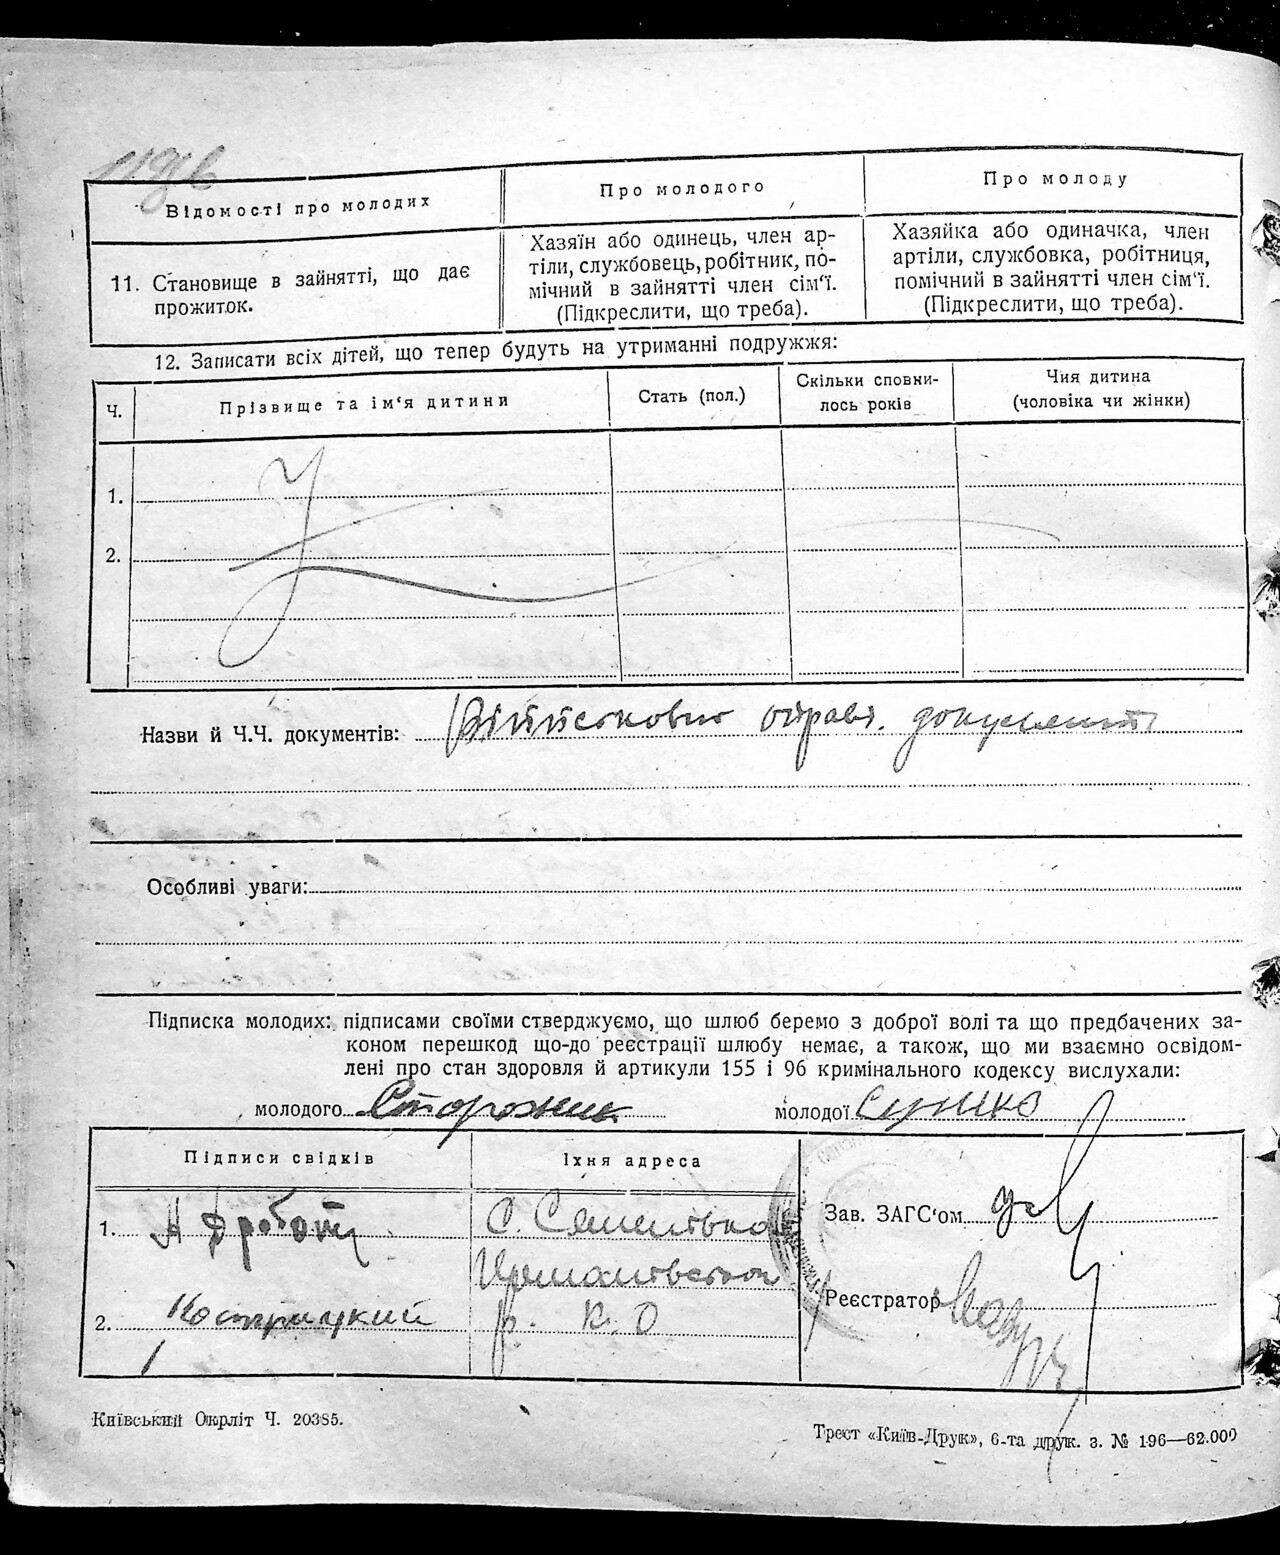 Відомості про молодих
Про молодого
Про молоду
11. Становище в зайнятті, що дає
прожиток.
Хазяїн або одинець, член ар-
тіли, службовець, робітник, по-
мічний в зайнятті член сім'ї.
(Підкреслити, що треба).
Хазяйка або одиначка, член
артіли, службовка, робітниця,
помічний в зайнятті член сім'ї.
(Підкреслити, що треба).
12. Записати всіх дітей, що тепер будуть на утриманні подружжя:
Ч.
Прізвище та ім'я дитини
Стать (пол.)
Скільки сповни-
лось років
Чия дитина
(чоловіка чи жінки)
1.
2.
Назви й Ч.Ч. документів: Військово документ
Особливі уваги:
Підписка молодих: підписами своїми стверджуємо, що шлюб беремо з доброї волі та що предбачених за-
коном перешкод що-до реєстрації шлюбу немає, а також, що ми взаємно освідом-
лені про стан здоровля й артикули 155 і 96 кримінального кодексу вислухали:
молодого Сторожик молодої
Підписи свідків
Їхня адреса
1. А Дробот
С.
2. Кострицкий
р. К. О
Зав. ЗАГС'ом
Реєстратор
Київський Окрліт Ч. 20385.
Трест «Київ-Друк», 6-та друк. з. № 196—62.000